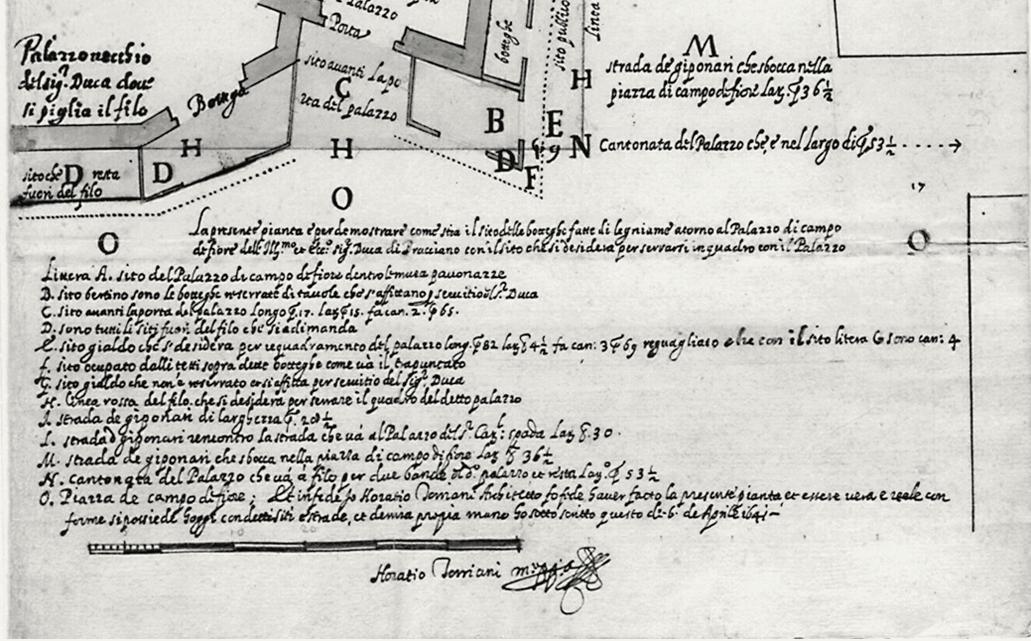 Palazzo
Porta
botteghe
sito publico
linea
Palazzo vecchio
del sig.r Duca dove
si piglia il filo
Bottega
sito avanti la po
rta del palazzo
C
M
strada de giponari che sbocca nella
piazza di campo di fiore larg. 36½
H
B
E
N
Cantonata del Palazzo che è nel largo di 53½
H
H
D
F
sito che D resta
fuori del filo
D
O
17
O
O
La presente pianta è per demostrare come stia il sito delle botteghe fatte di legniame atorno al Palazzo di campo
de fiore dell' Ill.mo et ecc. sig. Duca di Bracciano con il sito che si desidera per serrarsi in quadro con il Palazzo
Littera A. sito del Palazzo di campo de fiore dentro le mura pavonazze
B. sito bertino sono le botteghe reserrate di tavole che s'affittano servitio S. Duca
C. sito avanti la porta del palazzo longo 17. larg 15. fa can. 2. 65.
D. sono tutti li siti fuori del filo che si adimanda
E. sito gialdo che si desidera per requadramento del palazzo long. 82 larg 4½ fa can: 3 69 reguagliato che con il sito litera G sono can: 4
F. sito ocupato dalli tetti sopra dette botteghe come và il trapuntato
G. sito gialdo che non è reserrato et si affitta per servitio del sig.r Duca
H. linea rossa del filo che si desidera per serrare il quadro del detto palazzo
I. strada de giponari di larghezza 20½
L. strada giponari rencontro la strada che và al Palazzo del S. Car: spada Larg 30.
M. strada de giponari che sbocca nella piazza di campo di fiore Larg 36½
N. cantonata del Palazzo che và à filo per due bande palazzo et resta Larg.o 53½
O. Piazza de campo di fiore; Et in fede Io Horatio Torriani Architetto fo fede haver facto la presente pianta et essere vera e reale con
forme si possiede hoggi con detti siti e strade, et de mia propia mano ho sotto scritto questo di 6 de Aprile 1641
10
20
Horatio Torriani